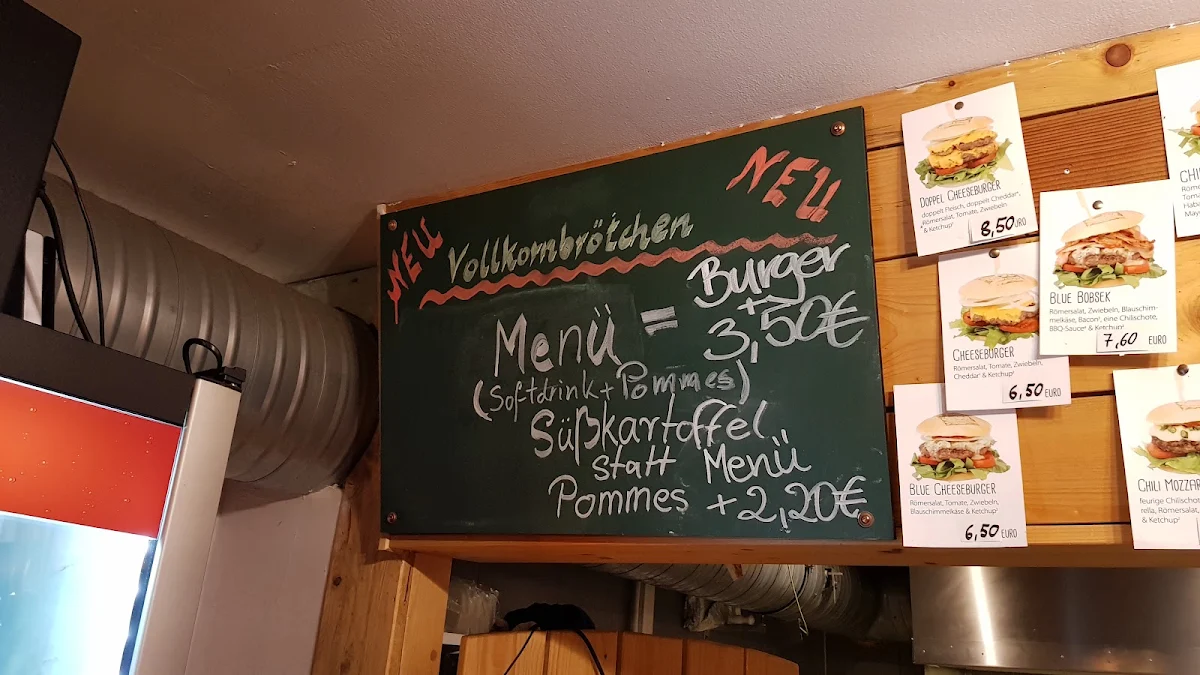 NEU
NEU
Vollkornbrötchen
Menü = Burger
+
3,50€
(Softdrink + Pommes)
Süßkartoffel
statt Menü
Pommes +2,20€
DOPPEL CHEESEBURGER
doppelt Fleisch, doppelt Cheddar¹,
Römersalat, Tomate, Zwiebeln
& Ketchup²
8,50 URO
BLUE BOBSEK
Römersalat, Zwiebeln, Blauschim-
melkäse, Bacon³, eine Chilischote,
BBQ-Sauce⁴ & Ketchup²
7,60 EURO
CHEESEBURGER
Römersalat, Tomate, Zwiebeln,
Cheddar¹ & Ketchup²
6,50 EURO
BLUE CHEESEBURGER
Römersalat, Tomate, Zwiebeln,
Blauschimmelkäse & Ketchup²
6,50 EURO
CHILI MOZZAR
feurige Chilischote
rella, Römersalat,
& Ketchup²
CHI
Röme
Toma
Haba
May